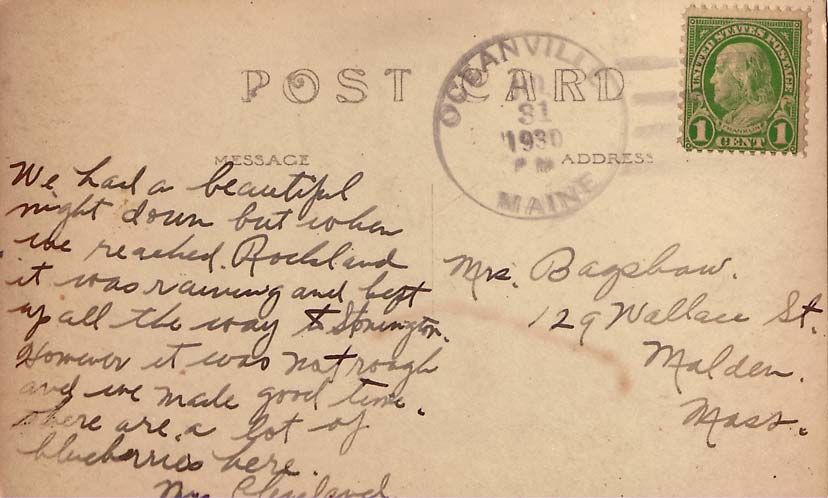 POST CARD
OCEANVILLE
31
1930
PM
MAINE
UNITED STATES POSTAGE
FRANKLIN
1 CENT 1
MESSAGE
ADDRESS
We had a beautiful
night down but when
we reached Rockland
it was raining and kept
up all the way to Stonington.
However it was not rough
and we made good time.
There are a lot of
blueberries here.
Mrs. Cleveland
Mrs. Bagshaw.
129 Wallace St.
Malden.
Mass.